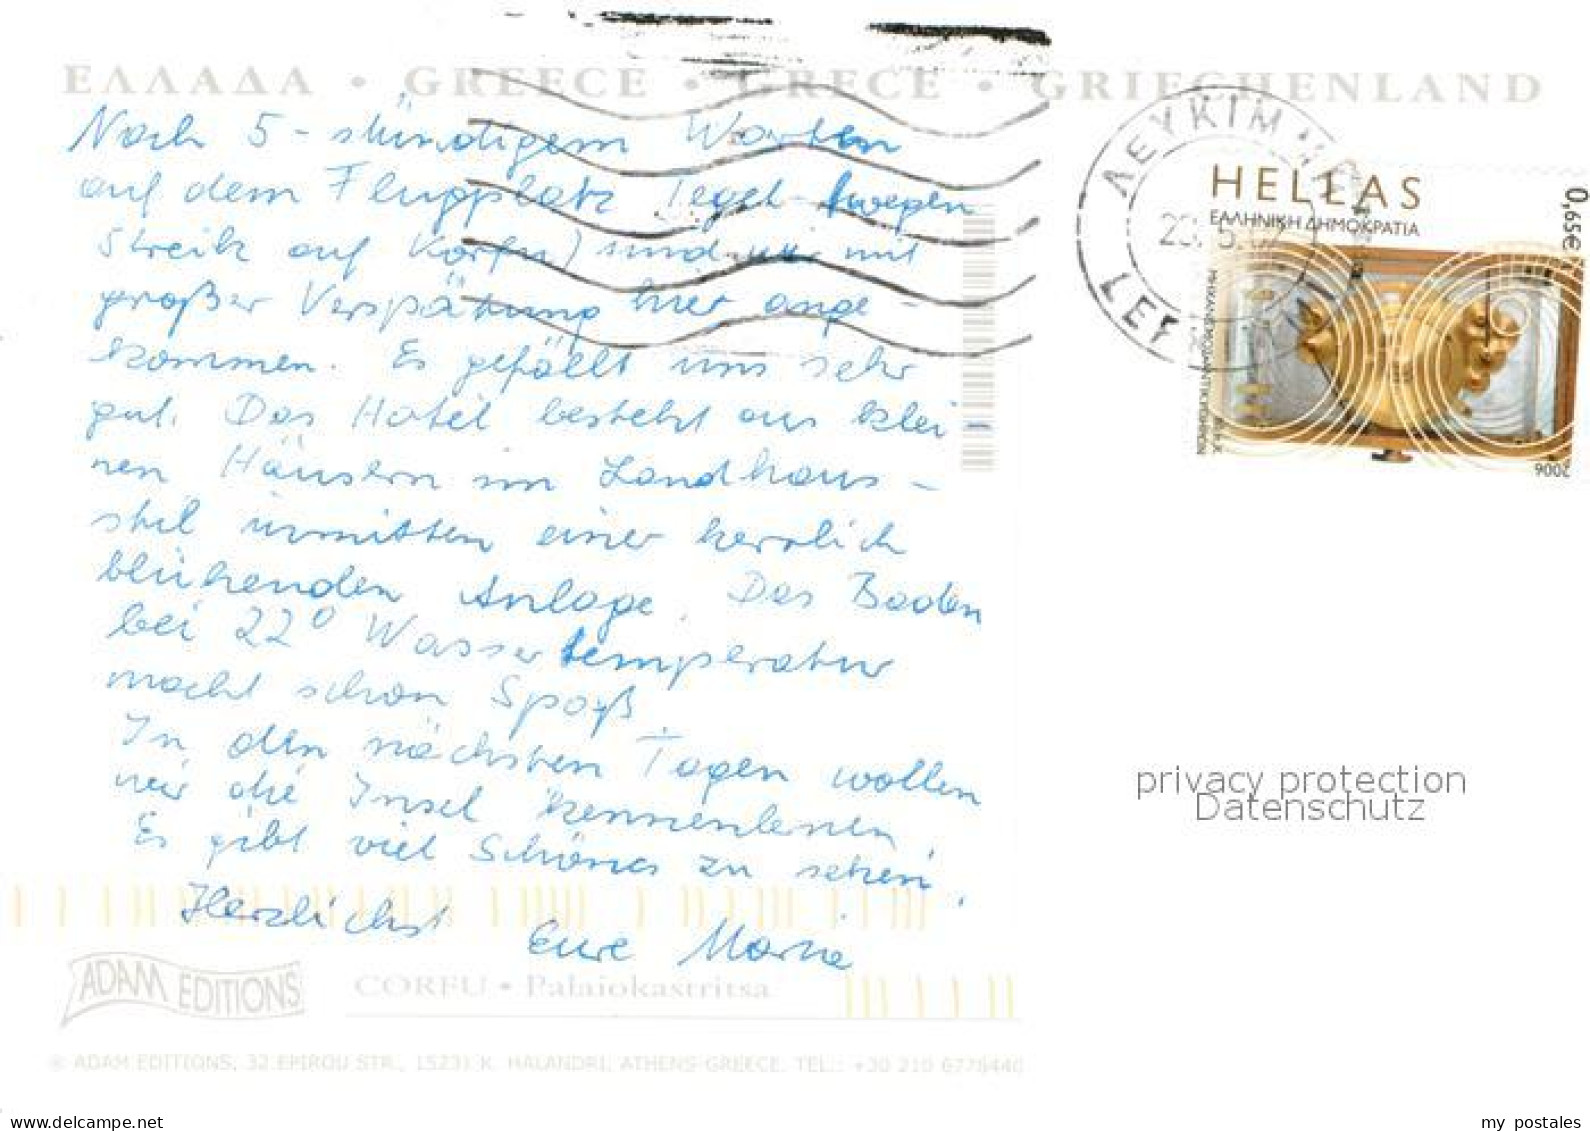 ΕΛΛΑΔΑ • GREECE • GRECE • GRIECHENLAND
Nach 5-stündigem Warten
auf dem Flugplatz Tegel (wegen
Streik auf Korfu) sind wir mit
großer Verspätung hier ange-
kommen. Es gefällt uns sehr
gut. Das Hotel besteht aus klei
nen Häusern im Landhaus-
stil inmitten einer herrlich
blühenden Anlage. Das Baden
bei 22° Wassertemperatur
macht schon Spaß
In den nächsten Tagen wollen
wir die Insel kennenlernen.
Es gibt viel Schönes zu sehen.
Herzlichst
Eure Marie
ADAM EDITIONS
CORFU • Palaiokastritsa
© ADAM EDITIONS, 32 EPIROU STR., 15231 K. HALANDRI, ATHENS-GREECE. TEL.: +30 210 6778440
ΛΕΥΚΙΜ
23. 5.
HELLAS
ΕΛΛΗΝΙΚΗ ΔΗΜΟΚΡΑΤΙΑ
0,65€
2006
privacy protection
Datenschutz
www.delcampe.net
my_postales